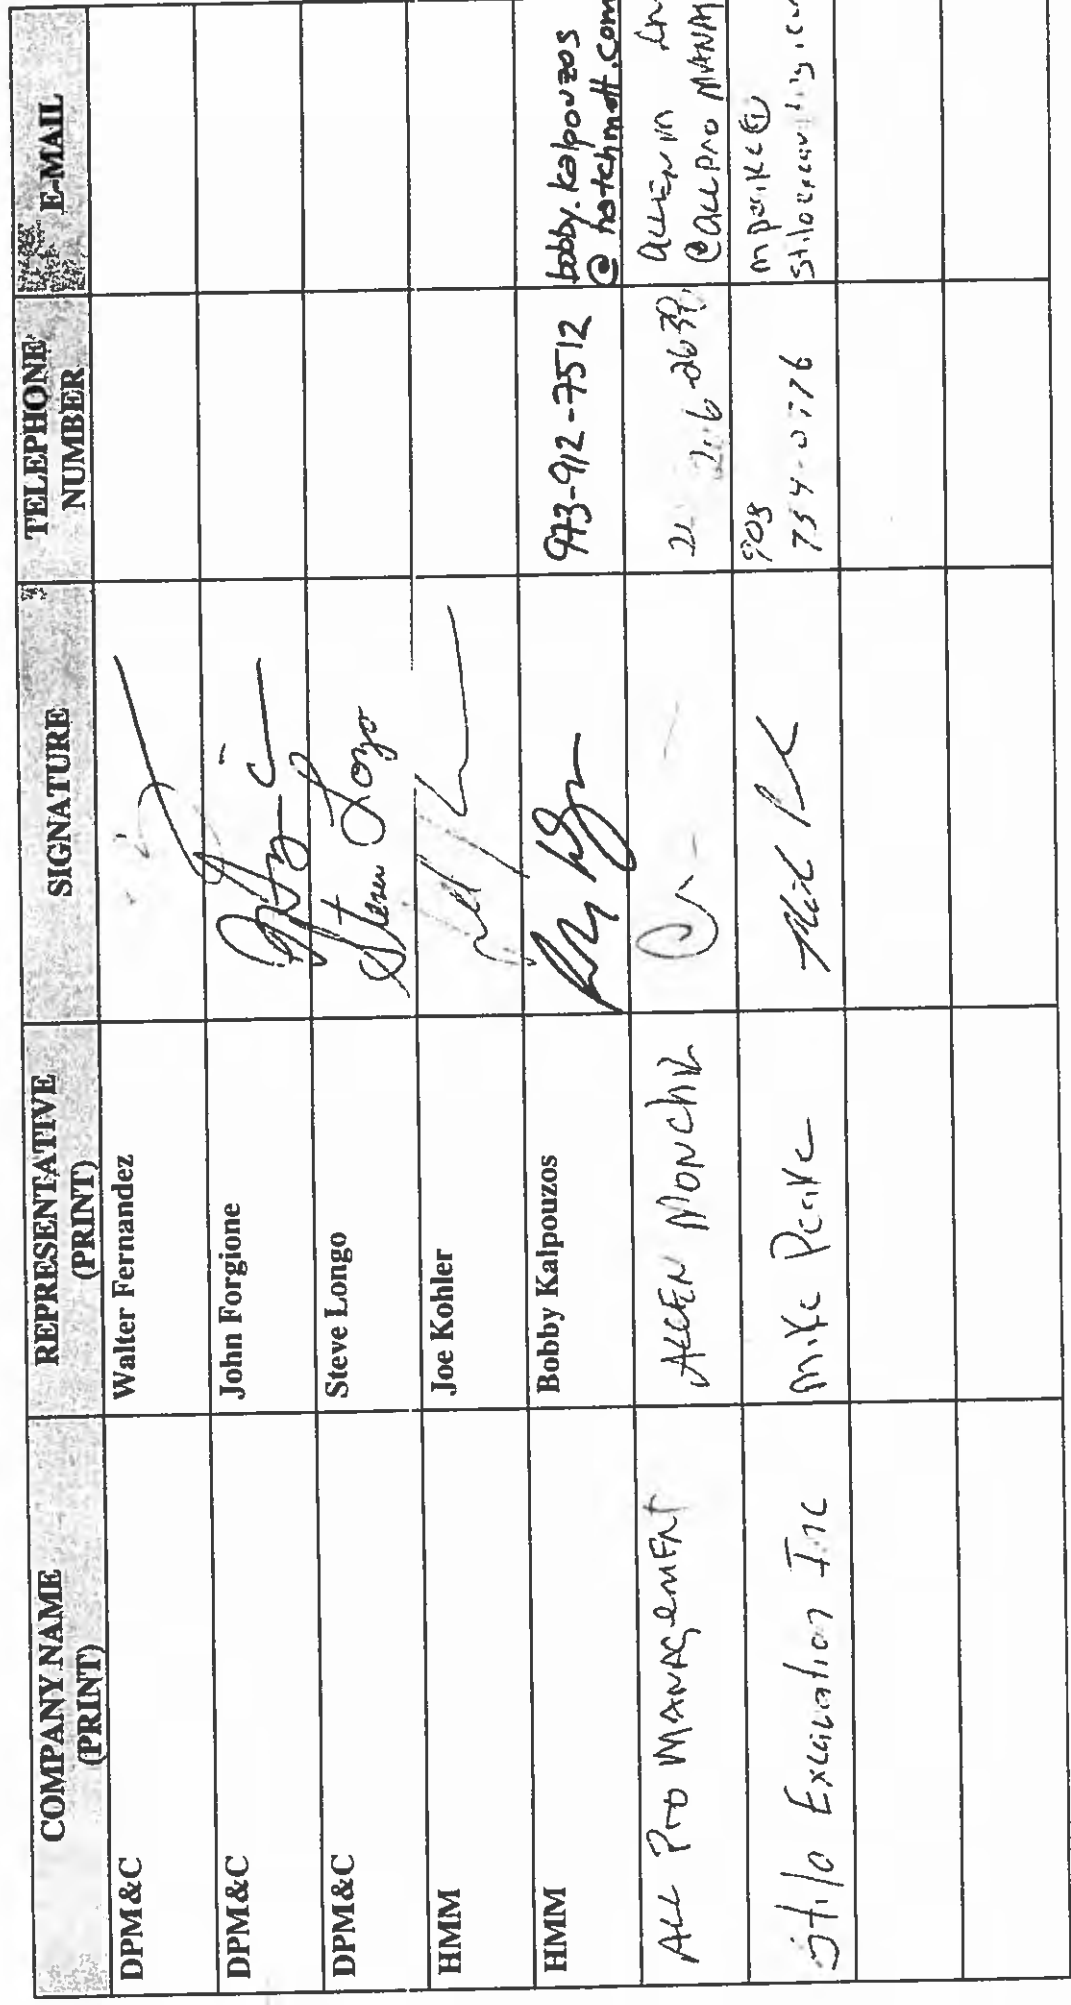 COMPANY NAME (PRINT) REPRESENTATIVE (PRINT) SIGNATURE TELEPHONE NUMBER E-MAIL
DPM&C Walter Fernandez
DPM&C John Forgione
DPM&C Steve Longo Steven Longo
HMM Joe Kohler
HMM Bobby Kalpouzos 973-912-7512 bobby.kalpouzos
@hatchmott.com
ALL Pro MANAGEMENT ALLEN 2630
@ALLPRO
Stilo Excavation Inc Mike Peake 908
754-0776